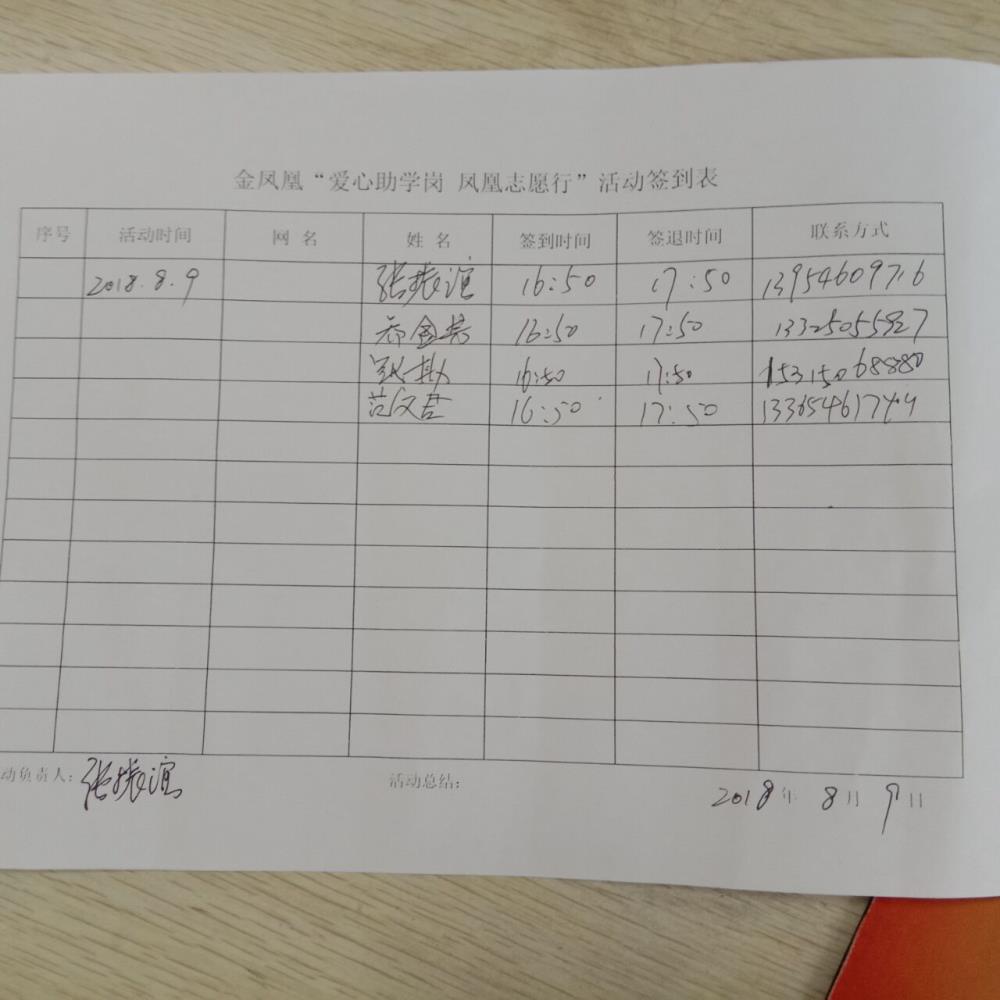 金凤凰“爱心助学岗 凤凰志愿行”活动签到表
序号 活动时间 网 名 姓 名 签到时间 签退时间 联系方式
2018.8.9 张振谊 16:50 17:50 13954609716
16:50 17:50 13325055927
16:50 17:50 15315068880
范文君 16:50 17:50
动负责人: 张振谊 活动总结: 2018年 8月 9日